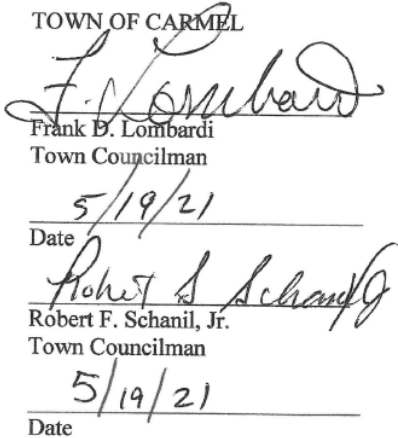 TOWN OF CARMEL
F. Lombard
Frank D. Lombardi
Town Councilman
5/19/21
Date
Robert S Schanil Jr
Robert F. Schanil, Jr.
Town Councilman
5/19/21
Date